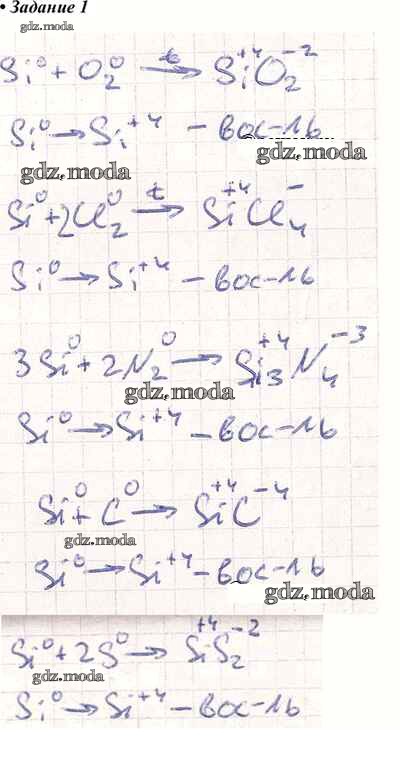 • Задание 1
gdz.moda
Si⁰ + O₂⁰ —t→ Si⁺⁴O₂⁻²
Si⁰ → Si⁺⁴ – вос-ль
gdz.moda gdz.moda
Si⁰ + 2Cl₂⁰ —t→ Si⁺⁴Cl₄⁻
Si⁰ → Si⁺⁴ – вос-ль
3Si⁰ + 2N₂⁰ → Si₃⁺⁴N₄⁻³
gdz.moda
Si⁰ → Si⁺⁴ – вос-ль
Si⁰ + C⁰ → Si⁺⁴C⁻⁴
gdz.moda
Si⁰ → Si⁺⁴ – вос-ль
gdz.moda
Si⁰ + 2S⁰ → Si⁺⁴S₂⁻²
gdz.moda
Si⁰ → Si⁺⁴ – вос-ль